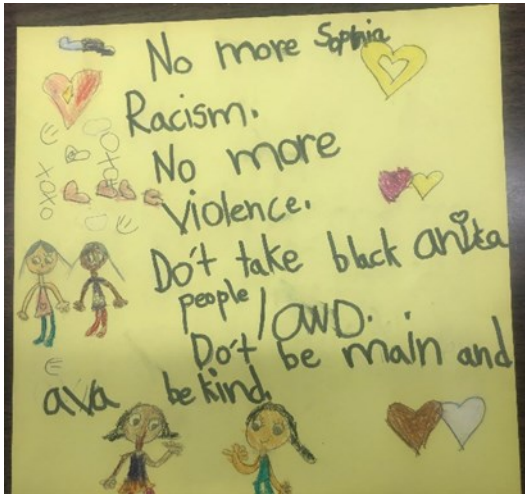 No more Sophia
Racism.
No more
XOXO
OXOX
Violence.
Do't take black anika
people
land.
Do't be main and
ava be kind.